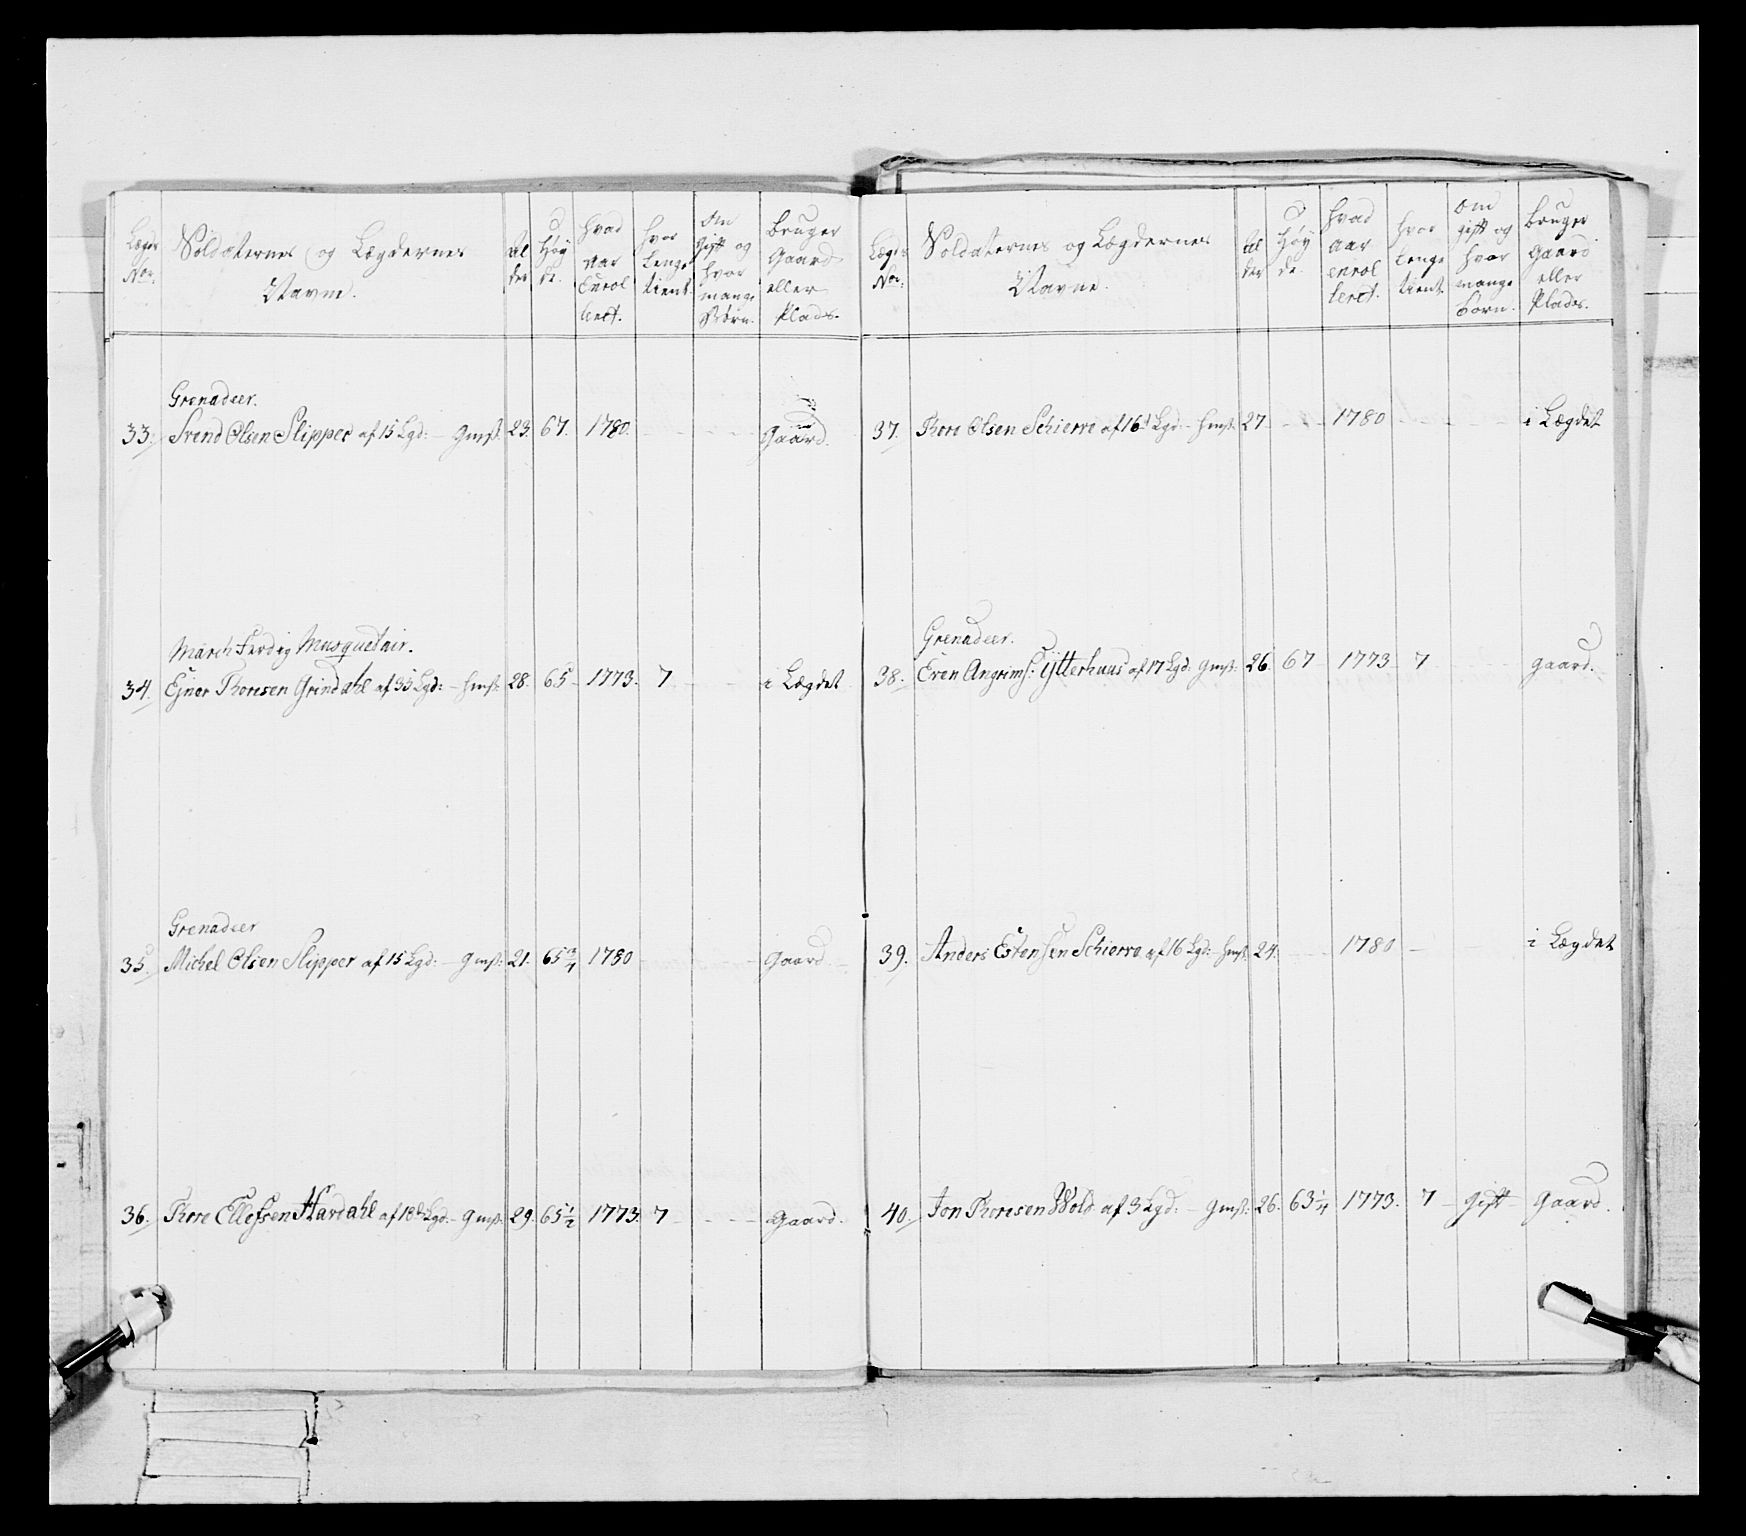 Lægds No: Soldaternes og Lægdernes Navne. Al der Høy de. hvad aar Enrol leret. hvor lenge tient Om Gift og hvor mange Børn. bruger Gaard eller Plads.
Grenadeer.
33. Svend Olsen Slipper af 15 Lgd: – Gmst: 23. 67. 1780. Gaard.
March Ferdig Musquetair.
34. Ejner Thoresen Grindahl af 35 Lgd: – hmst: 28. 65 1773. 7 i Lægdet
Grenadeer
35. Michel Olsen Slipper af 15 Lgd: – Gmst: 21. 65 3/4 1780 Gaard
36. Thore Ellefsen Hardahl af 18de Lgd: – Gmst: 29. 65 1/2 1773. 7 Gaard.
Lægds No: Soldaternes og Lægdernes Navne. Al der Høy de. hvad aar enrol leret. hvor lenge tient om gift og hvor mange børn. bruger Gaard eller Plads.
37. Thore Olsen Schierve af 16 Lgd – hmst: 27 1780 i Lægdet
Grenadeer.
38. Even Angrims: Ytterhuus af 17 Lgd: Gmst: 26 67 1773 7 gaard.
39. Anders Estensen Schierve af 16 Lgd: – hmst: 24. 1780 i Lægdet
40. Jon Thoresen Wold af 3 Lgd: – Gmst: 26. 63 1/4 1773. 7 Gift Gaard.